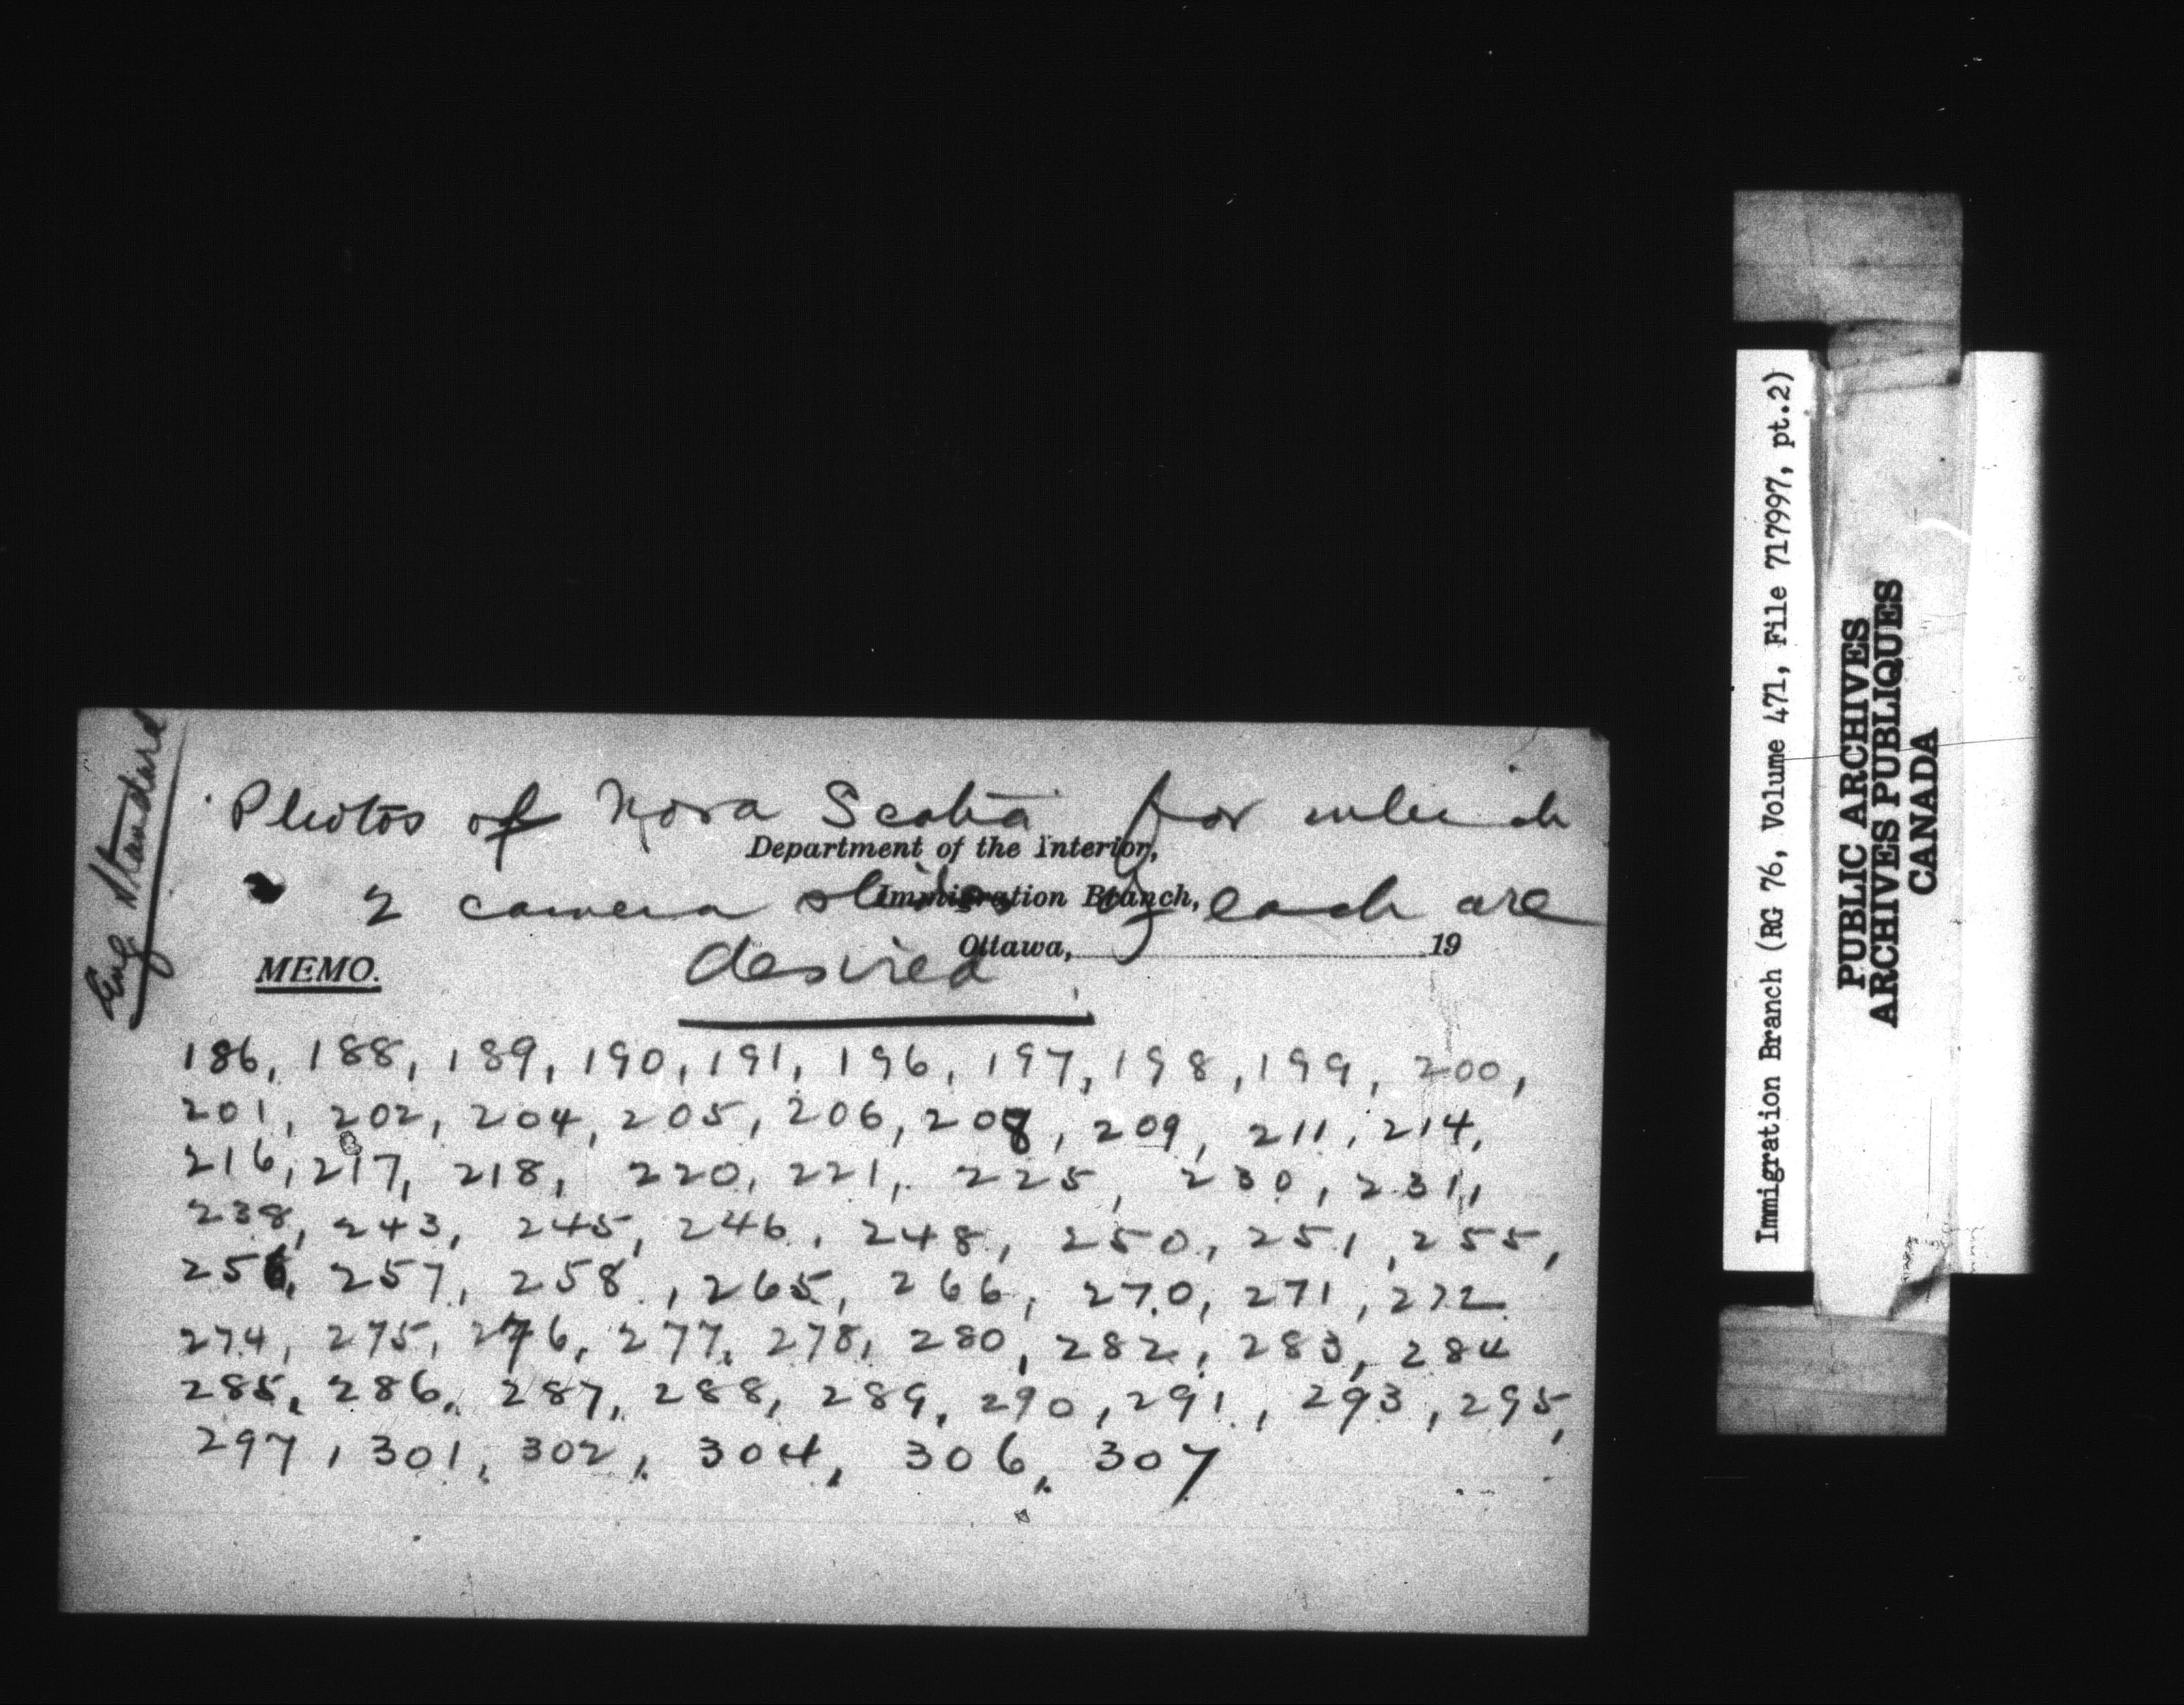 Eng. Standard
Photos of Nova Scotia for which
Department of the Interior,
2 camera slides of each are
Immigration Branch,
Ottawa, 19
desired
MEMO.
186, 188, 189, 190, 191, 196, 197, 198, 199, 200,
201, 202, 204, 205, 206, 208, 209, 211, 214,
216, 217, 218, 220, 221, 225, 230, 231,
238, 243, 245, 246, 248, 250, 251, 255,
256, 257, 258, 265, 266, 270, 271, 272
274, 275, 276, 277, 278, 280, 282, 283, 284
285, 286, 287, 288, 289, 290, 291, 293, 295,
297, 301, 302, 304, 306, 307
Immigration Branch (RG 76, Volume 471, File 717997, pt.2)
PUBLIC ARCHIVES
ARCHIVES PUBLIQUES
CANADA